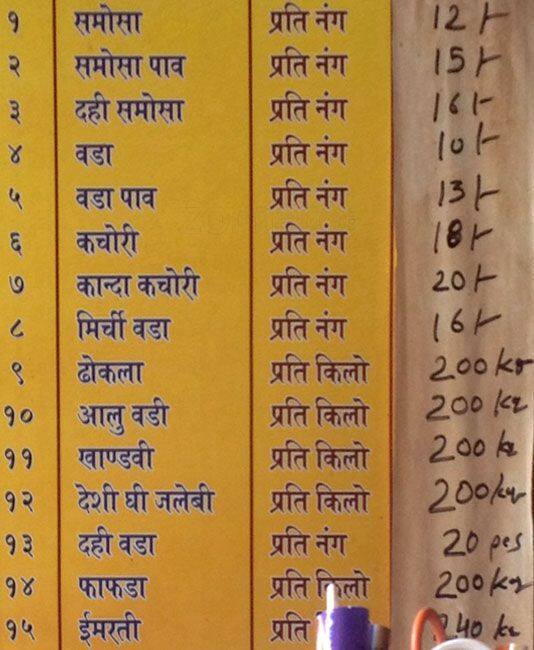 १ समोसा प्रति नंग 12/-
२ समोसा पाव प्रति नंग 15/-
३ दही समोसा प्रति नंग 16/-
४ वडा प्रति नंग 10/-
५ वडा पाव प्रति नंग 13/-
६ कचोरी प्रति नंग 18/-
७ कान्दा कचोरी प्रति नंग 20/-
८ मिर्ची वडा प्रति नंग 16/-
९ ढोकला प्रति किलो 200 kg
१० आलु वडी प्रति किलो 200 kg
११ खाण्डवी प्रति किलो 200
१२ देशी घी जलेबी प्रति किलो 200
१३ दही वडा प्रति नंग 20 pcs
१४ फाफडा प्रति किलो 200 kg
१५ ईमरती प्रति 240